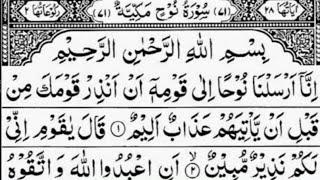 اٰيَاتُهَا ٢٨ (٧١) سُوْرَةُ نُوْحٍ مَكِّيَّةٌ (٧١) رُكُوْعَاتُهَا ٢
بِسْمِ اللّٰهِ الرَّحْمٰنِ الرَّحِيْمِ
اِنَّاۤ اَرْسَلْنَا نُوْحًا اِلٰى قَوْمِهٖۤ اَنْ اَنْذِرْ قَوْمَكَ مِنْ
قَبْلِ اَنْ يَّاْتِيَهُمْ عَذَابٌ اَلِيْمٌ ۝١ قَالَ يٰقَوْمِ اِنِّيْ
لَكُمْ نَذِيْرٌ مُّبِيْنٌ ۝٢ اَنِ اعْبُدُوا اللّٰهَ وَاتَّقُوْهُ